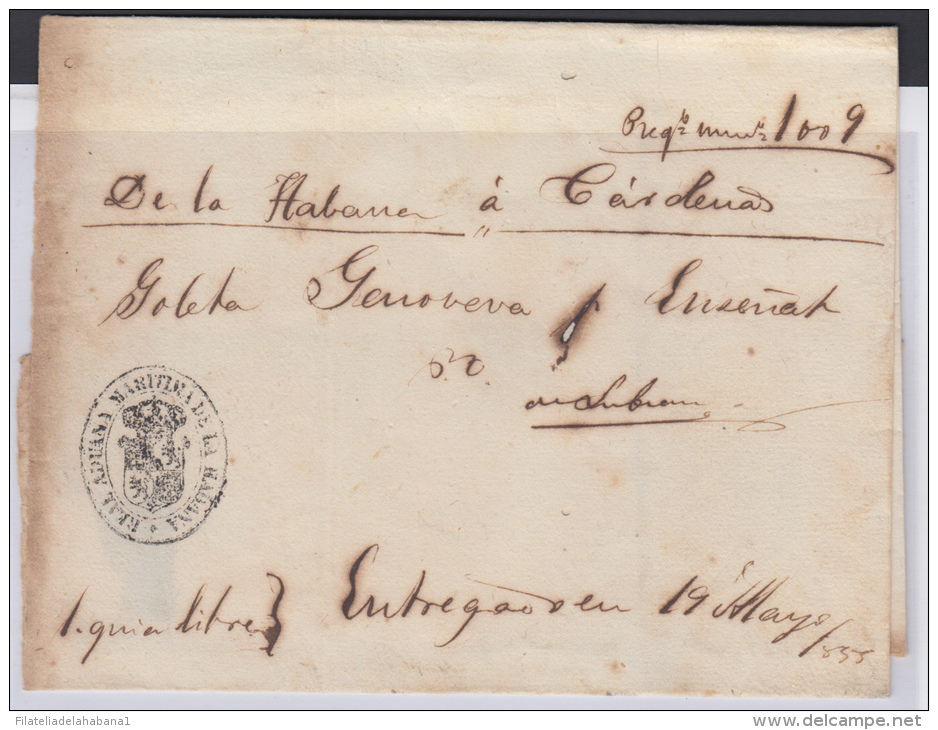 1009
De la Habana á Cárdenas
Goleta Genoveva Enseñat
REAL ADUANA MARITIMA DE LA HABANA
1. guia libre } Entregado en 19 Mayo/855
Filateliadelahabana1
www.delcampe.net